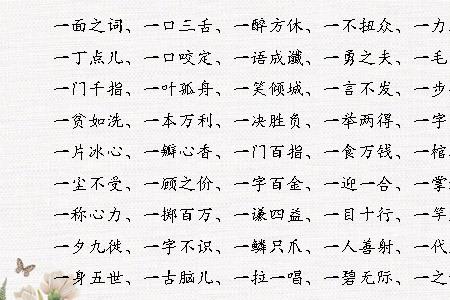 一面之词、一口三舌、一醉方休、一不扭众、一力
一丁点儿、一口咬定、一语成谶、一勇之夫、一毛
一门千指、一叶孤舟、一笑倾城、一言不发、一步
一贫如洗、一本万利、一决胜负、一举两得、一字
一片冰心、一瓣心香、一门百指、一食万钱、一棺
一尘不受、一顾之价、一字百金、一迎一合、一掌
一称心力、一掷百万、一谦四益、一目十行、一竿
一夕九徙、一字不识、一鳞只爪、一人善射、一代
一身五世、一古脑儿、一拉一唱、一碧无际、一之